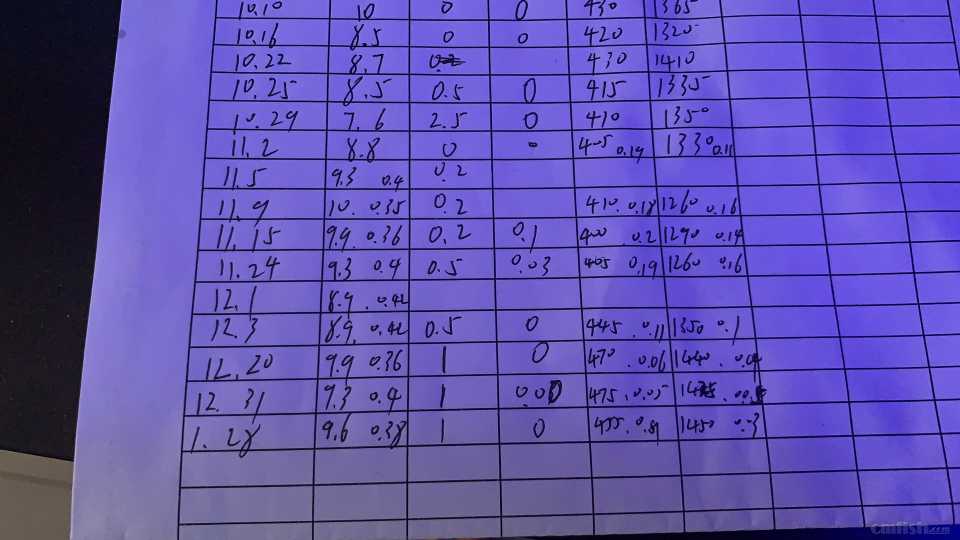 10.10 10 0 0 430 1365
10.16 8.5 0 0 420 1320
10.22 8.7 430 1410
10.25 8.5 0.5 0 415 1335
10.29 7.6 2.5 0 410 1350
11.2 8.8 0 0 405 0.19 1330 0.11
11.5 9.3 0.4 0.2
11.9 10. 0.35 0.2 410. 0.18 1260 0.16
11.15 9.9. 0.36 0.2 0.1 400 . 0.2 1290 0.14
11.24 9.3 0.4 0.5 0.03 405 0.19 1260 0.16
12.1 8.9 . 0.42
12.3 8.9. 0.42 0.5 0 445 . 0.11 1350 0.1
12.20 9.9 0.36 1 0 470 . 0.06 1440 . 0.04
12.31 9.3 0.4 1 475. 0.05
1.28 9.6 0.38 1 0 1450
cnfish.com